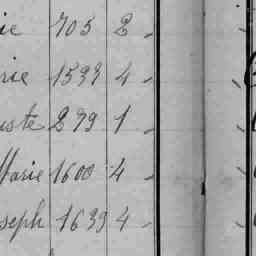 ie 705 2
rie 1599 4
uste 299 1
Marie 1600 4
seph 1639 4